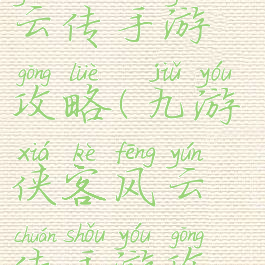 云传手游
gōng lüè jiǔ yóu
攻略(九游
xiá kè fēng yún
侠客风云
chuán shǒu yóu gōng
传手游攻